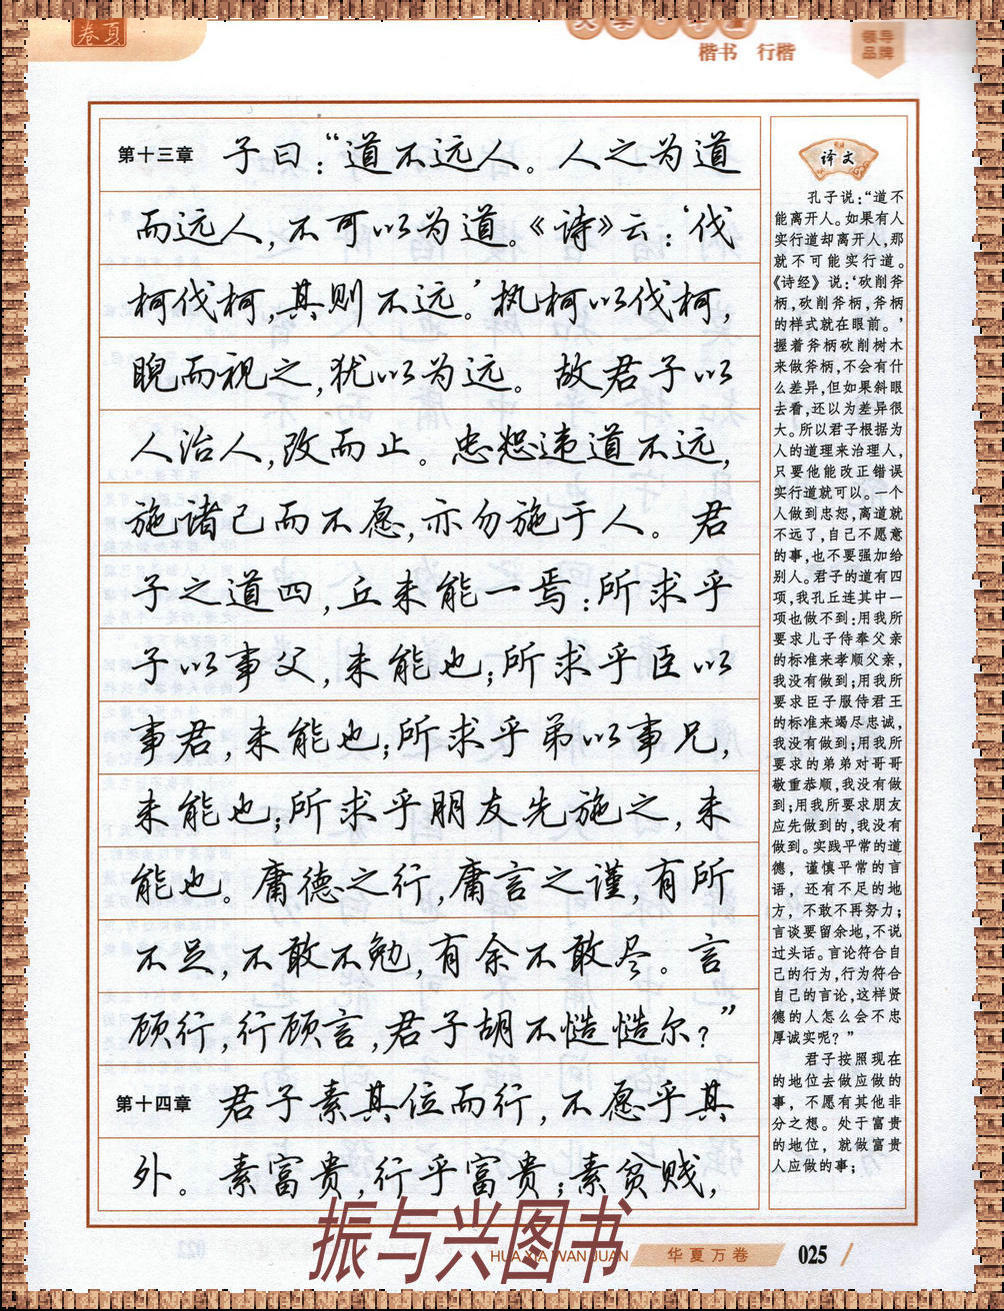 卷夏
楷书 行楷
领导
品牌
第十三章 子曰：“道不远人。人之为道
而远人，不可以为道。《诗》云：‘伐
柯伐柯，其则不远。’执柯以伐柯，
睨而视之，犹以为远。故君子以
人治人，改而止。忠恕违道不远，
施诸己而不愿，亦勿施于人。君
子之道四，丘未能一焉：所求乎
子以事父，未能也；所求乎臣以
事君，未能也；所求乎弟以事兄，
未能也；所求乎朋友先施之，未
能也。庸德之行，庸言之谨，有所
不足，不敢不勉，有余不敢尽。言
顾行，行顾言，君子胡不慥慥尔？”
第十四章 君子素其位而行，不愿乎其
外。素富贵，行乎富贵；素贫贱，
译文
孔子说：“道不
能离开人。如果有人
实行道却离开人，那
就不可能实行道。
《诗经》说：‘砍削斧
柄，砍削斧柄，斧柄
的样式就在眼前。’
握着斧柄砍削树木
来做斧柄，不会有什
么差异，但如果斜眼
去看，还以为差异很
大。所以君子根据为
人的道理来治理人，
只要他能改正错误
实行道就可以。一个
人做到忠恕，离道就
不远了，自己不愿意
的事，也不要强加给
别人。君子的道有四
项，我孔丘连其中一
项也做不到：用我所
要求儿子侍奉父亲
的标准来孝顺父亲，
我没有做到；用我所
要求臣子服侍君王
的标准来竭尽忠诚，
我没有做到；用我所
要求的弟弟对哥哥
敬重恭顺，我没有做
到；用我所要求朋友
应先做到的，我没有
做到。实践平常的道
德，谨慎平常的言
语，还有不足的地
方，不敢不再努力；
言谈要留余地，不说
过头话。言论符合自
己的行为，行为符合
自己的言论，这样贤
德的人怎么会不忠
厚诚实呢？”
君子按照现在
的地位去做应做的
事，不愿有其他非
分之想。处于富贵
的地位，就做富贵
人应做的事；
振与兴图书
HUA XIA WAN JUAN
华夏万卷
025